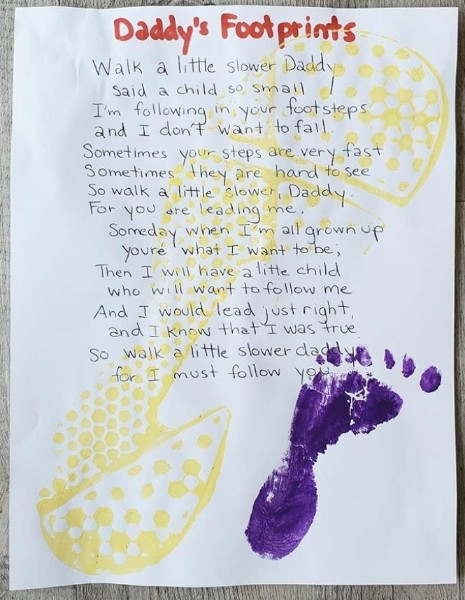 Daddy's Footprints
Walk a little slower Daddy
Said a child so small
I'm following in your footsteps
and I don't want to fall.
Sometimes your steps are very fast
Sometimes they are hard to see
So walk a little slower, Daddy.
For you are leading me.
Someday when I'm all grown up
you're what I want to be;
Then I will have a little child
who will want to follow me
And I would lead just right,
and I know that I was true
So walk a little slower daddy
for I must follow you